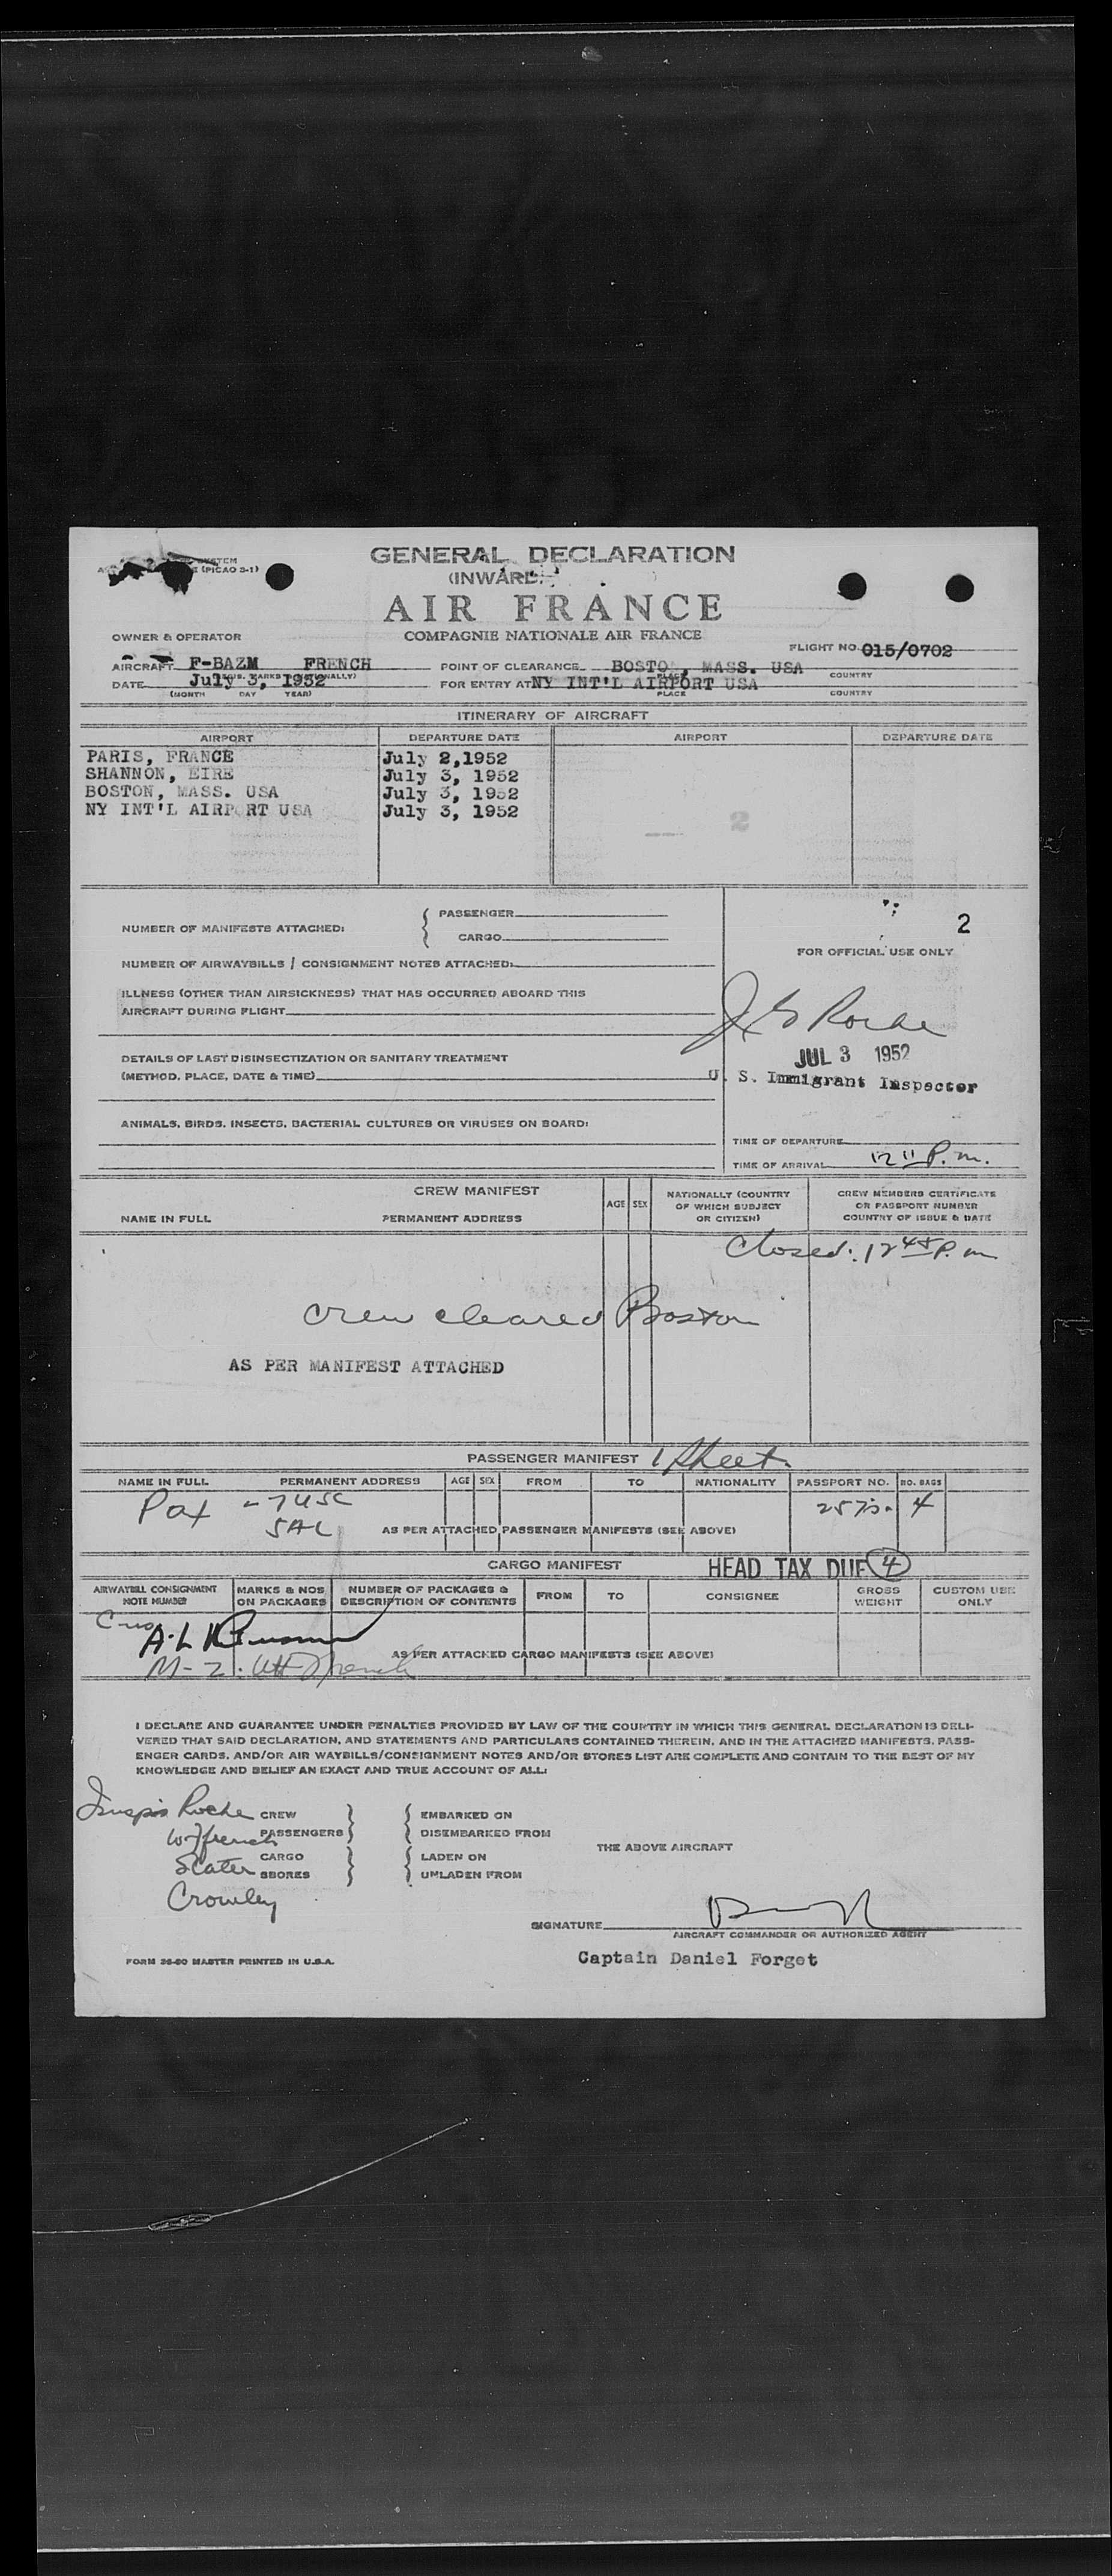 GENERAL DECLARATION
(INWARD)
(PICAO S-1)
AIR FRANCE
COMPAGNIE NATIONALE AIR FRANCE
OWNER & OPERATOR
FLIGHT NO. 015/0702
AIRCRAFT F-BAZM FRENCH POINT OF CLEARANCE BOSTON, MASS. USA
PLACE COUNTRY
DATE July 3, 1952 FOR ENTRY AT NY INT'L AIRPORT USA
(MONTH DAY YEAR) PLACE COUNTRY
ITINERARY OF AIRCRAFT
AIRPORT DEPARTURE DATE AIRPORT DEPARTURE DATE
PARIS, FRANCE July 2,1952
SHANNON, EIRE July 3, 1952
BOSTON, MASS. USA July 3, 1952
NY INT'L AIRPORT USA July 3, 1952
2
NUMBER OF MANIFESTS ATTACHED: { PASSENGER
CARGO
2
FOR OFFICIAL USE ONLY
NUMBER OF AIRWAYBILLS / CONSIGNMENT NOTES ATTACHED:
ILLNESS (OTHER THAN AIRSICKNESS) THAT HAS OCCURRED ABOARD THIS
AIRCRAFT DURING FLIGHT
Roche
JUL 3 1952
U. S. Immigrant Inspector
DETAILS OF LAST DISINSECTIZATION OR SANITARY TREATMENT
(METHOD, PLACE, DATE & TIME)
ANIMALS, BIRDS, INSECTS, BACTERIAL CULTURES OR VIRUSES ON BOARD:
TIME OF DEPARTURE
TIME OF ARRIVAL 12 11 P.m.
CREW MANIFEST
NAME IN FULL PERMANENT ADDRESS AGE SEX NATIONALLY (COUNTRY OF WHICH SUBJECT OR CITIZEN) CREW MEMBERS CERTIFICATE OR PASSPORT NUMBER COUNTRY OF ISSUE & DATE
Closed: 12 45 P.m
Crew cleared Boston
AS PER MANIFEST ATTACHED
PASSENGER MANIFEST 1 Sheet.
NAME IN FULL PERMANENT ADDRESS AGE SEX FROM TO NATIONALITY PASSPORT NO. NO. BAGS
Pax - 7 USC 4
5 AL AS PER ATTACHED PASSENGER MANIFESTS (SEE ABOVE)
CARGO MANIFEST HEAD TAX DUE 4
AIRWAYBILL CONSIGNMENT NOTE NUMBER MARKS & NOS ON PACKAGES NUMBER OF PACKAGES & DESCRIPTION OF CONTENTS FROM TO CONSIGNEE GROSS WEIGHT CUSTOM USE ONLY
A.L
M-2. AS PER ATTACHED CARGO MANIFESTS (SEE ABOVE)
I DECLARE AND GUARANTEE UNDER PENALTIES PROVIDED BY LAW OF THE COUNTRY IN WHICH THIS GENERAL DECLARATION IS DELI-
VERED THAT SAID DECLARATION, AND STATEMENTS AND PARTICULARS CONTAINED THEREIN, AND IN THE ATTACHED MANIFESTS, PASS-
ENGER CARDS, AND/OR AIR WAYBILLS/CONSIGNMENT NOTES AND/OR STORES LIST ARE COMPLETE AND CONTAIN TO THE BEST OF MY
KNOWLEDGE AND BELIEF AN EXACT AND TRUE ACCOUNT OF ALL:
Insp's Roche CREW } { EMBARKED ON
W French PASSENGERS DISEMBARKED FROM
THE ABOVE AIRCRAFT
Slater CARGO } { LADEN ON
SBORES UNLADEN FROM
Crowley
SIGNATURE
AIRCRAFT COMMANDER OR AUTHORIZED AGENT
Captain Daniel Forget
FORM 26-60 MASTER PRINTED IN U.S.A.